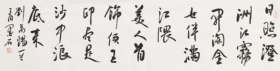 日照澄
洲江霧
開淘金
女伴滿
江隈
美人首
飾侯王
印盡是
沙中浪
底來
劉禹錫